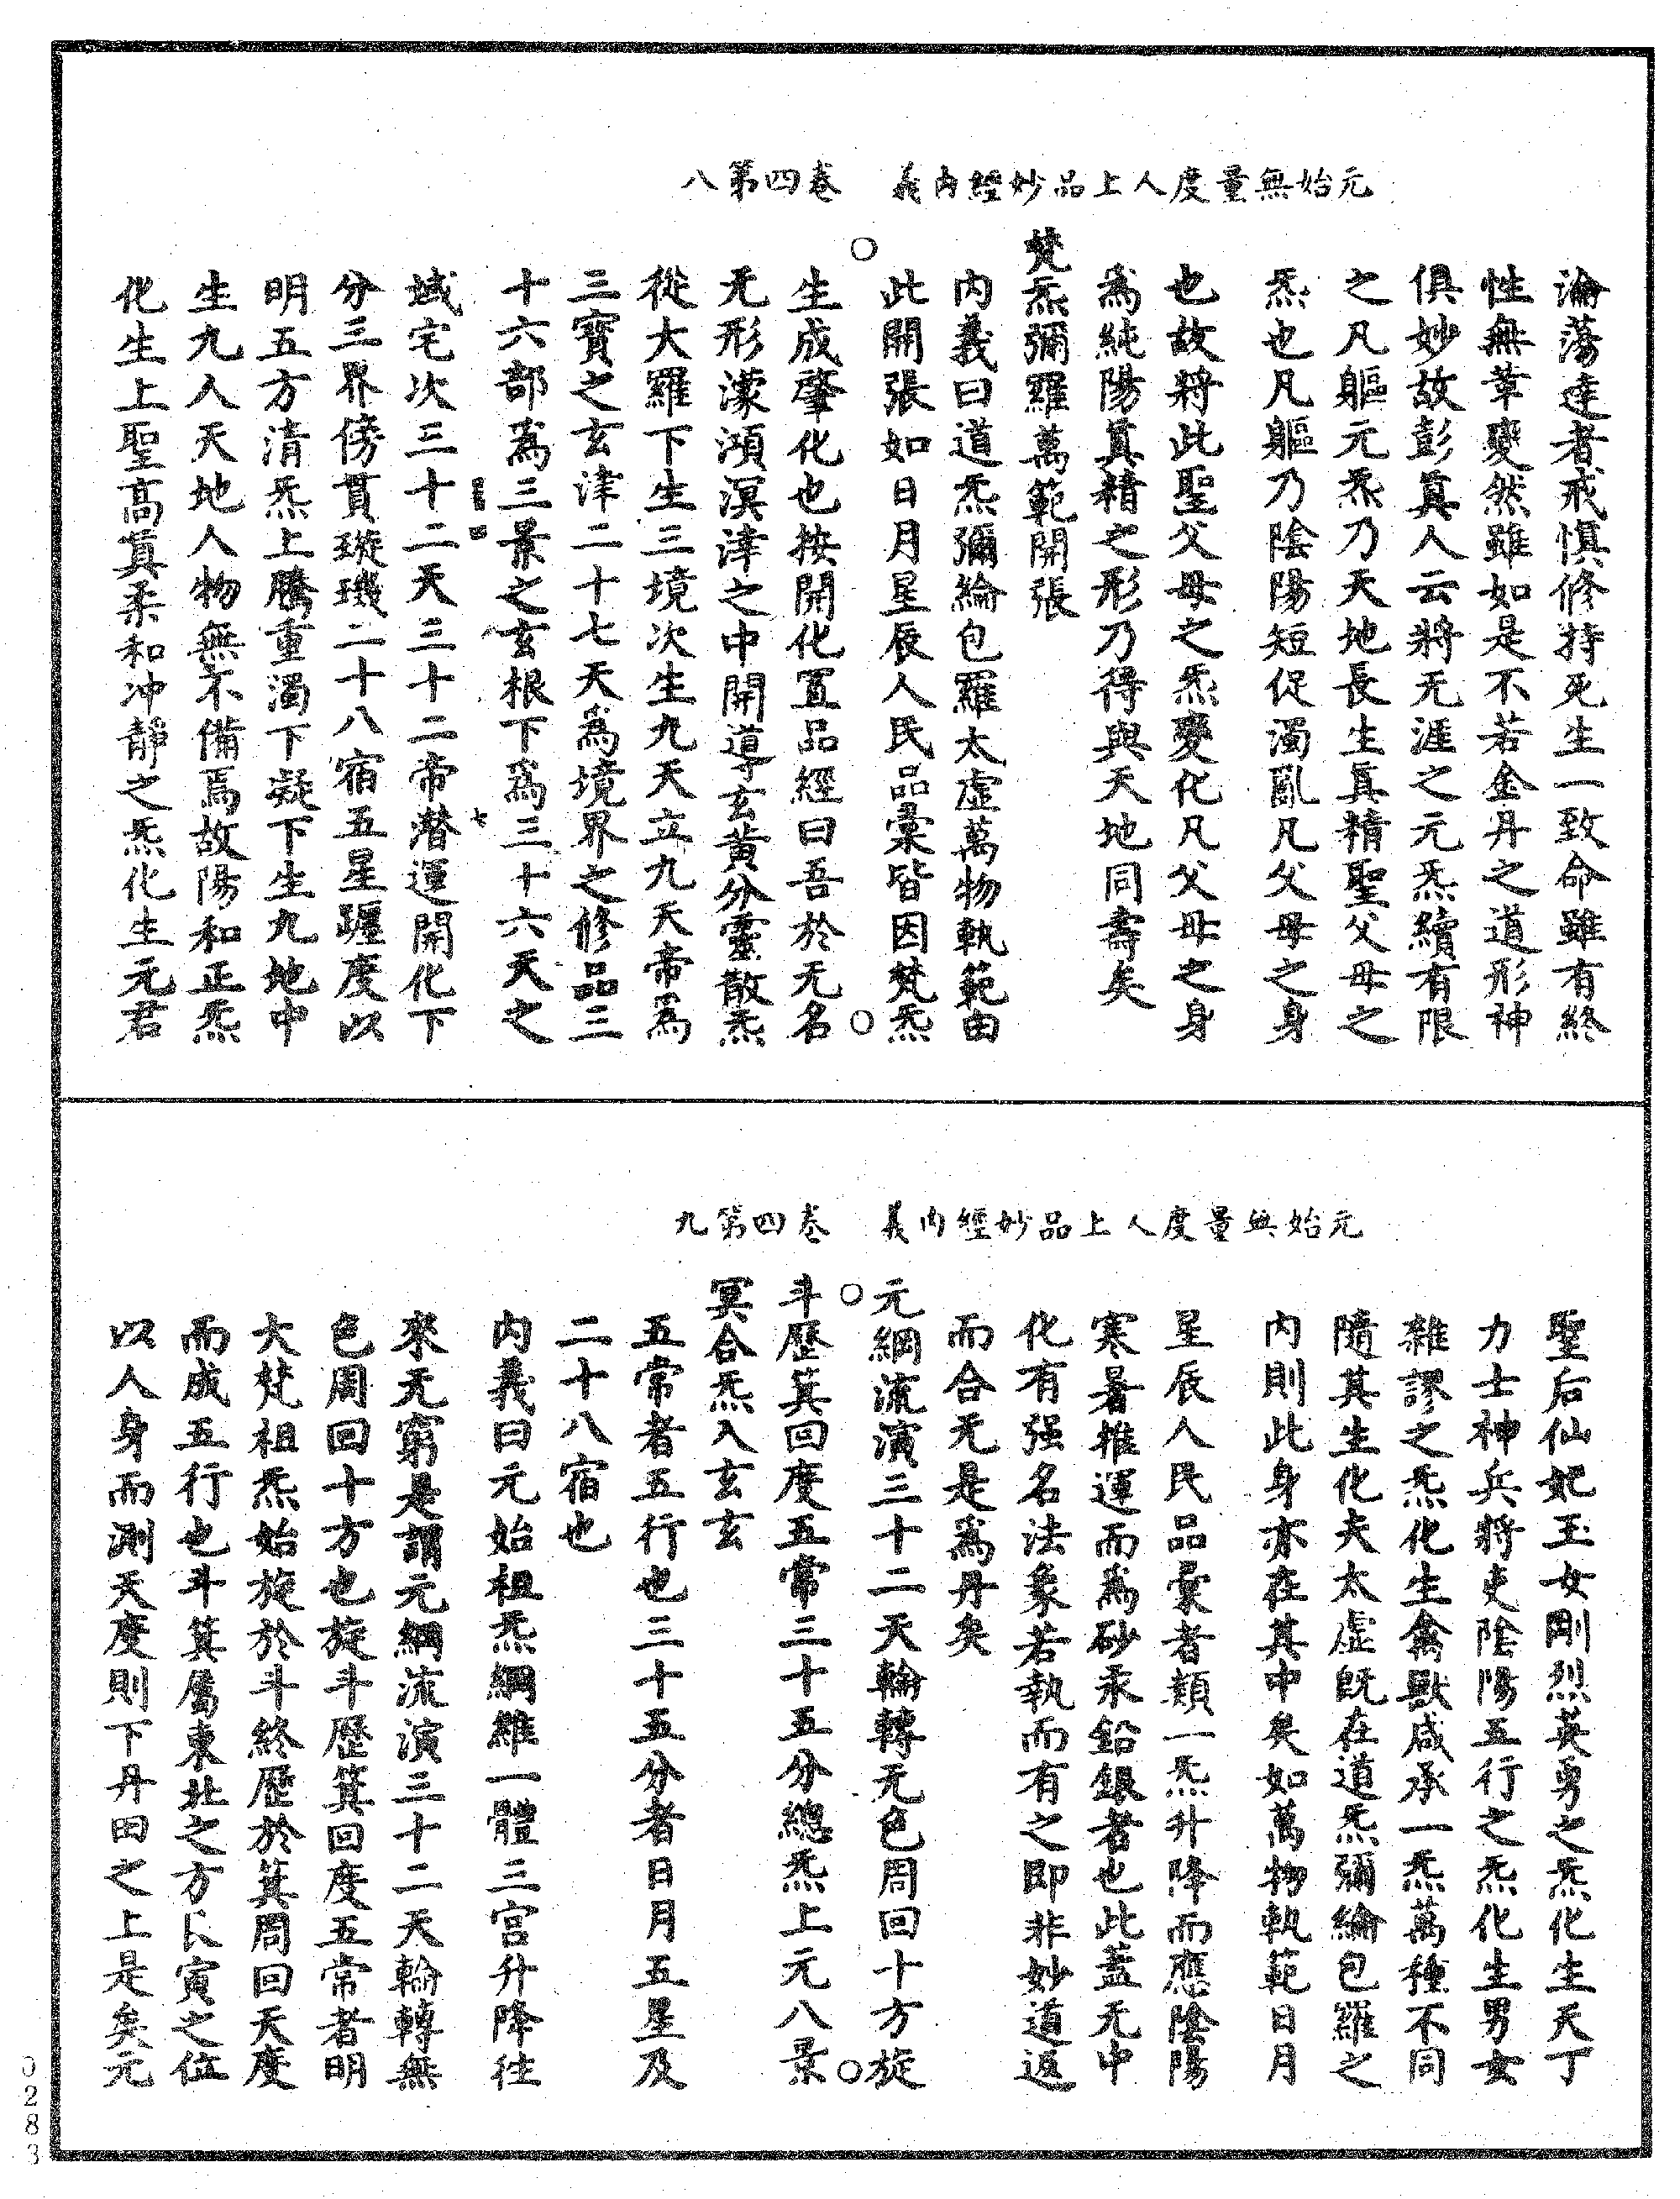 元始無量度人上品妙經內義　卷四第八
淪蕩達者戒慎修持死生一致命雖有終
性無革變然雖如是不若金丹之道形神
俱妙故彭真人云將无涯之元炁續有限
之凡軀元炁乃天地長生真精聖父母之
炁也凡軀乃陰陽短促濁亂凡父母之身
也故將此聖父母之炁變化凡父母之身
為純陽真精之形乃得與天地同壽矣
梵炁彌羅萬範開張
內義曰道炁彌綸包羅太虛萬物軌範由
此開張如日月星辰人民品彙皆因梵炁
生成肇化也按開化置品經曰吾於无名
无形濛澒溟涬之中開導玄黃分靈散炁
從大羅下生三境次生九天立九天帝為
三寶之玄津二十七天為境界之修品三
十六部為三景之玄根下為三十六天之
域宅次三十二天三十二帝潛運開化下
分三界傍貫璇璣二十八宿五星躔度以
明五方清炁上騰重濁下凝下生九地中
生九人天地人物無不備焉故陽和正炁
化生上聖高真柔和冲靜之炁化生元君
元始無量度人上品妙經內義　卷四第九
聖后仙妃玉女剛烈英勇之炁化生天丁
力士神兵將吏陰陽五行之炁化生男女
雜謬之炁化生禽獸咸承一炁萬種不同
隨其生化夫太虛既在道炁彌綸包羅之
內則此身亦在其中矣如萬物軌範日月
星辰人民品彙者類一炁升降而應陰陽
寒暑推運而為砂汞鉛銀者也此蓋无中
化有强名法象若執而有之即非妙道返
而合无是為丹矣
元綱流演三十二天輪轉无色周回十方旋
斗歷箕回度五常三十五分總炁上元八景
冥合炁入玄玄
五常者五行也三十五分者日月五星及
二十八宿也
內義曰元始祖炁綱維一體三宮升降往
來无窮是謂元綱流演三十二天輪轉無
色周回十方也旋斗歷箕回度五常者明
大梵祖炁始旋於斗終歷於箕周回天度
而成五行也斗箕屬東北之方艮寅之位
以人身而測天度則下丹田之上是矣元
0283